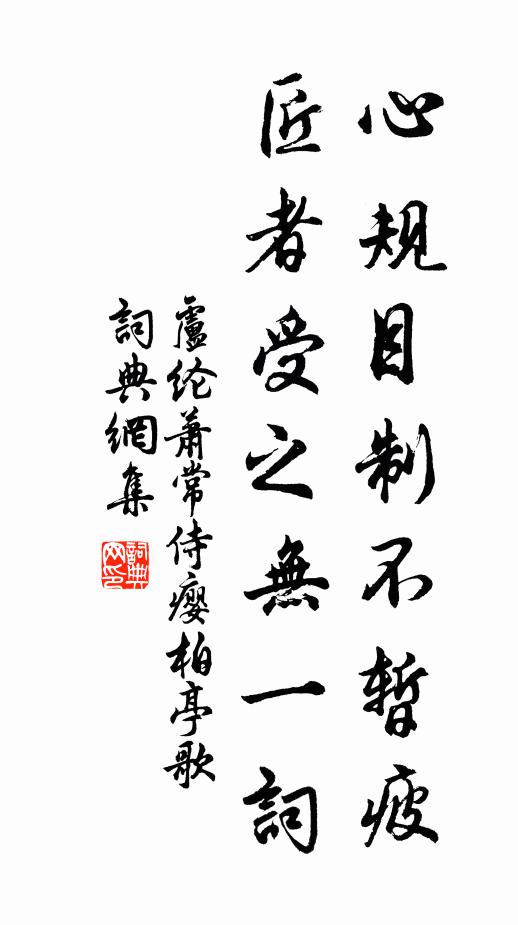 心規目制不暫疲
匠者受之無一詞
盧纶蕭常侍癭柏亭歌
詞典網集
詞典
网印